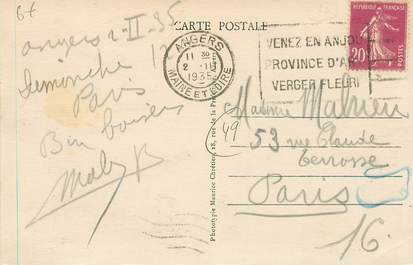 67
CARTE POSTALE
REPUBLIQUE FRANÇAISE
20
ANGERS
11 30
2 - II
1935
MAINE ET LOIRE
VENEZ EN ANJOU
PROVINCE D'A
VERGER FLEURI
angers 2-II-35
Dimanche
Paris
Bon baisers
Madame Mahieu
49
53 rue Claude
Terrosse
Paris
16
Phototypie Maurice Chrétien, 18, rue de la Pr